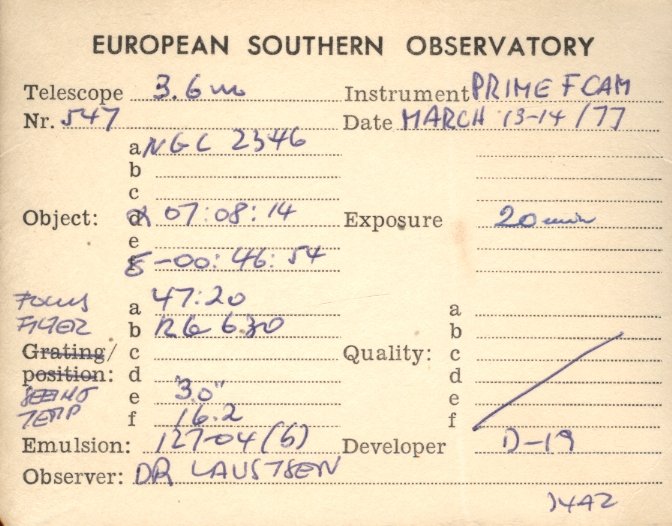 EUROPEAN SOUTHERN OBSERVATORY
Telescope 3.6 m Instrument PRIME F CAM
Nr. 547 Date MARCH 13-14/77
a NGC 2346
b
c
Object: d α 07:08:14 Exposure 20 min
e
f δ -00:46:54
FOCUS a 47:20 a
FILTER b RG 630 b
Grating/ c Quality: c
position: d d
SEEING e "3.0" e
TEMP f 16.2 f
Emulsion: 127-04 (6) Developer D-19
Observer: DR LAUSTSEN